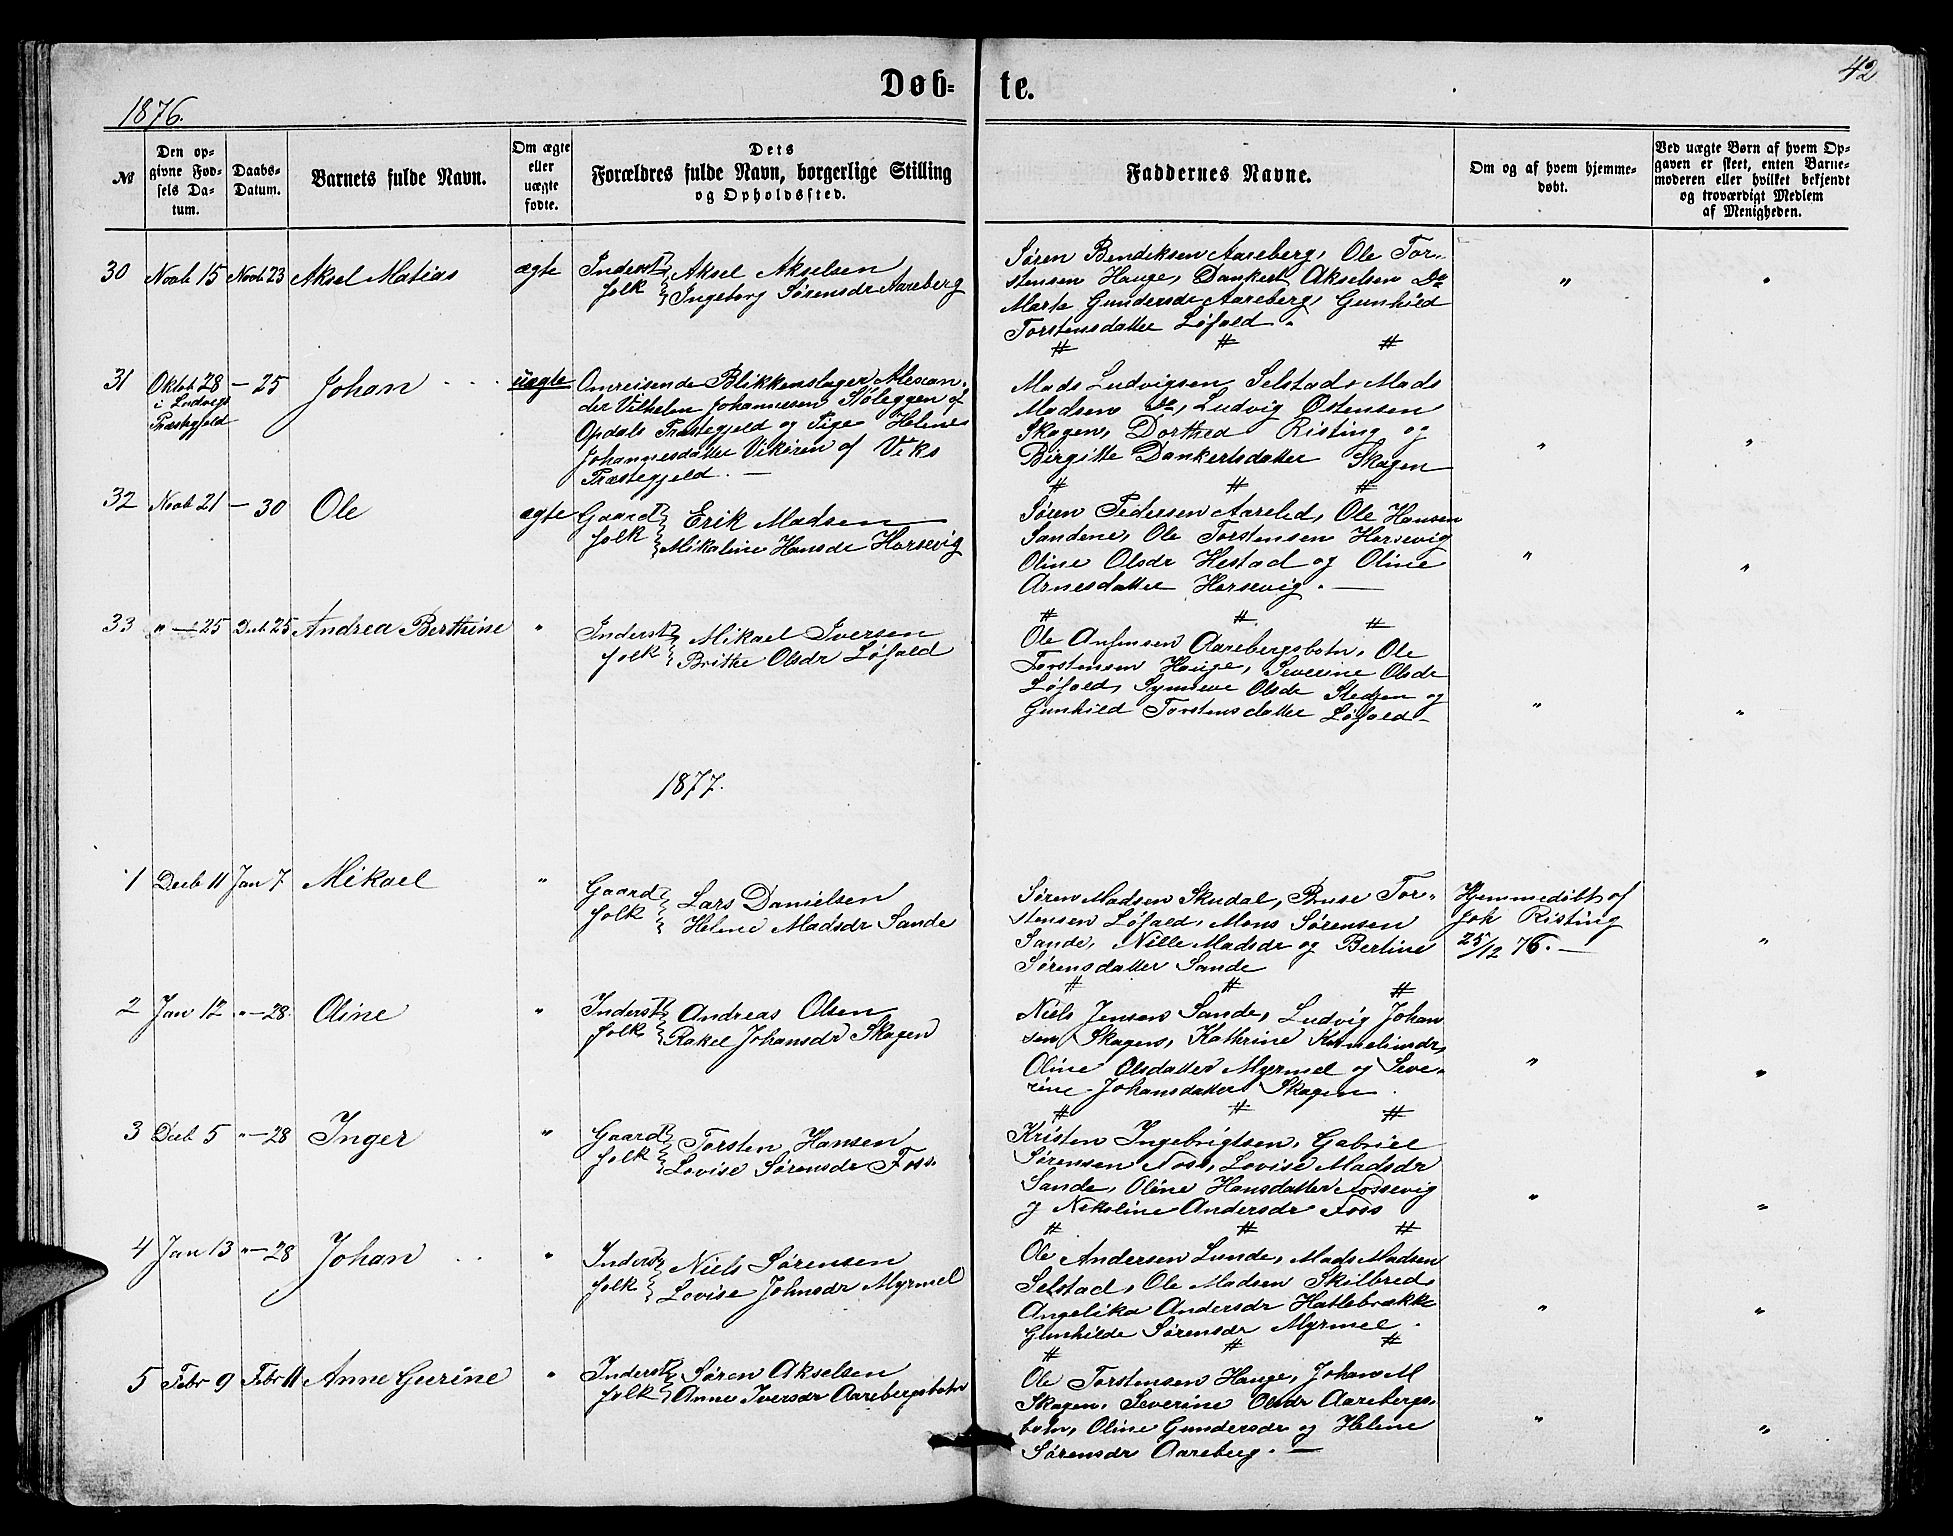 42
Døb- te.
1876.
№
Den op-
givne Fød-
sels Da-
tum.
Daabs-
Datum.
Barnets fulde Navn.
Om ægte
eller
uægte
fødte.
Dets
Forældres fulde Navn, borgerlige Stilling
og Opholdssted.
Faddernes Navne.
Om og af hvem hjemme-
døbt.
Ved uægte Børn af hvem Op-
gaven er skeet, enten Barne-
moderen eller hvilket bekjendt
og troværdigt Medlem
af Menigheden.
30 Novb 15 Novb 23 Aksel Matias ægte
Inderst
folk
Aksel Akselsen
Ingeborg Sørensdr Aareberg
Søren Bendiksen Aareberg, Ole Tor-
stensen Hauge, Dankert Akselsen Do
Marte Gundersdr Aareberg, Gunhild
Torstensdatter Løfald. " "
# # #
31 Oktob 28 — 25 Johan uægte
i Ladvigs
Præstegjeld
Omreisende Blikkenslager Alexan-
der Vilhelm Johannesen Støleggen af
Opdals Præstegjeld og Pige Helene
Johannesdatter Vikøren af Viks
Præstegjeld. —
Mads Ludvigsen Selstad, Mads
Madsen Do, Ludvig Østensen
Skagen, Dorthea Risting og
Birgitte Dankertsdatter Skagen " "
# # #
32 Novb 21 — 30 Ole ægte
Gaard
folk
Erik Madsen
Mikaline Hansdr Horsevig
Søren Pedersen Aarelid, Ole Hansen
Sandene, Ole Torstensen Horsevig
Oline Olsdr Hestad og Oline
Arnesdatter Horsevig. — " "
# # #
33 " — 25 Decb 25 Andrea Berthine "
Inderst
folk
Mikael Iversen
Brithe Olsdr Løfald
Ole Anfinsen Aarebergsbotn, Ole
Torstensen Hauge, Severine Olsdr
Løfald, Synneve Olsdr Stedjen og
Gunhild Torstensdatter Løfald — " "
1877.
1 Decb 11 Jan 7 Mikael "
Gaard
folk
Lars Danielsen
Helene Madsdr Sande
Søren Madsen Skudal, Buse Tor-
stensen Løfald, Mons Sørensen
Sande, Nille Madsdr og Bertine
Sørensdatter Sande
Hjemmedøbt af
Joh Risting
25/12 76. — "
# # #
2 Jan 12 " — 28 Oline "
Inderst
folk
Andreas Olsen
Rakel Johansdr Skagen
Niels Jensen Sande, Ludvig Johan
sen Skagen, Kathrine Kornelinsdr,
Oline Olsdatter Myrmel og Seve-
rine Johansdatter Skagen. " "
# # #
3 Decb 5 " — 28 Inger "
Gaard
folk
Torsten Hansen
Lovise Sørensdr Foss.
Kristen Ingebrigtsen, Gabriel
Sørensen Foss, Lovise Madsdr
Sande, Oline Hansdatter Fossevig
og Nikoline Andersdr Foss " "
# # #
4 Jan 13 " — 28 Johan "
Inderst
folk
Niels Sørensen
Lovise Johnsdr Myrmel
Ole Andersen Lunde, Mads Madsen
Selstad, Ole Madsen Skilbred,
Angelika Andersdr Hatlebrække
Gunhilde Sørensdr Myrmel. " "
# # #
5 Febr 9 Febr 11 Anne Gurine "
Inderst
folk
Søren Akselsen
Anne Iversdr Aarebergsbotn
Ole Torstensen Hauge, Johan M
Skagen, Severine Olsdr Aarebergs-
botn, Oline Gundersdr og Helene
Sørensdr Aareberg. — " "